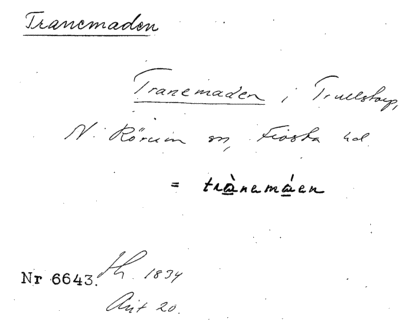 Tranemaden
Tranemaden i Trulstorp,
N. Rörum sn, Frosta hd
= trànemáen
Nr 6643. Th. 1834
Ant 20.